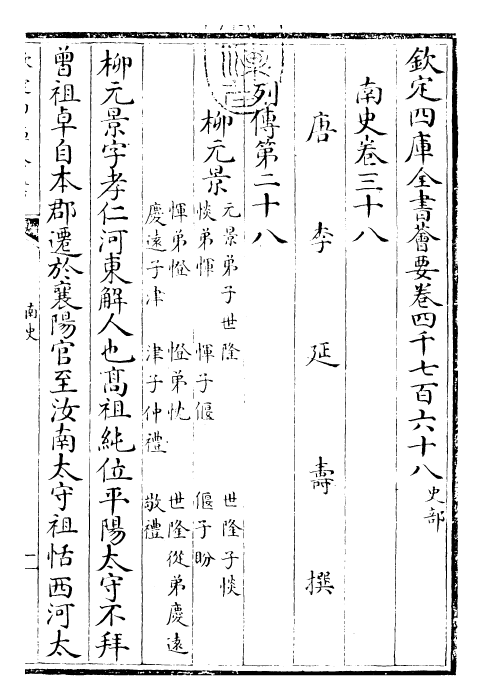 欽定四庫全書薈要卷四千七百六十八 史部
南史卷三十八
唐 李 延 壽 撰
列傳第二十八
柳元景
元景弟子世隆 世隆子惔
惔弟惲 惲子偃 偃子盼
惲弟憕 憕弟忱 世隆從弟慶遠
慶遠子津 津子仲禮 敬禮
柳元景字孝仁河東解人也髙祖純位平陽太守不拜
曾祖卓自本郡遷於襄陽官至汝南太守祖恬西河太
南史